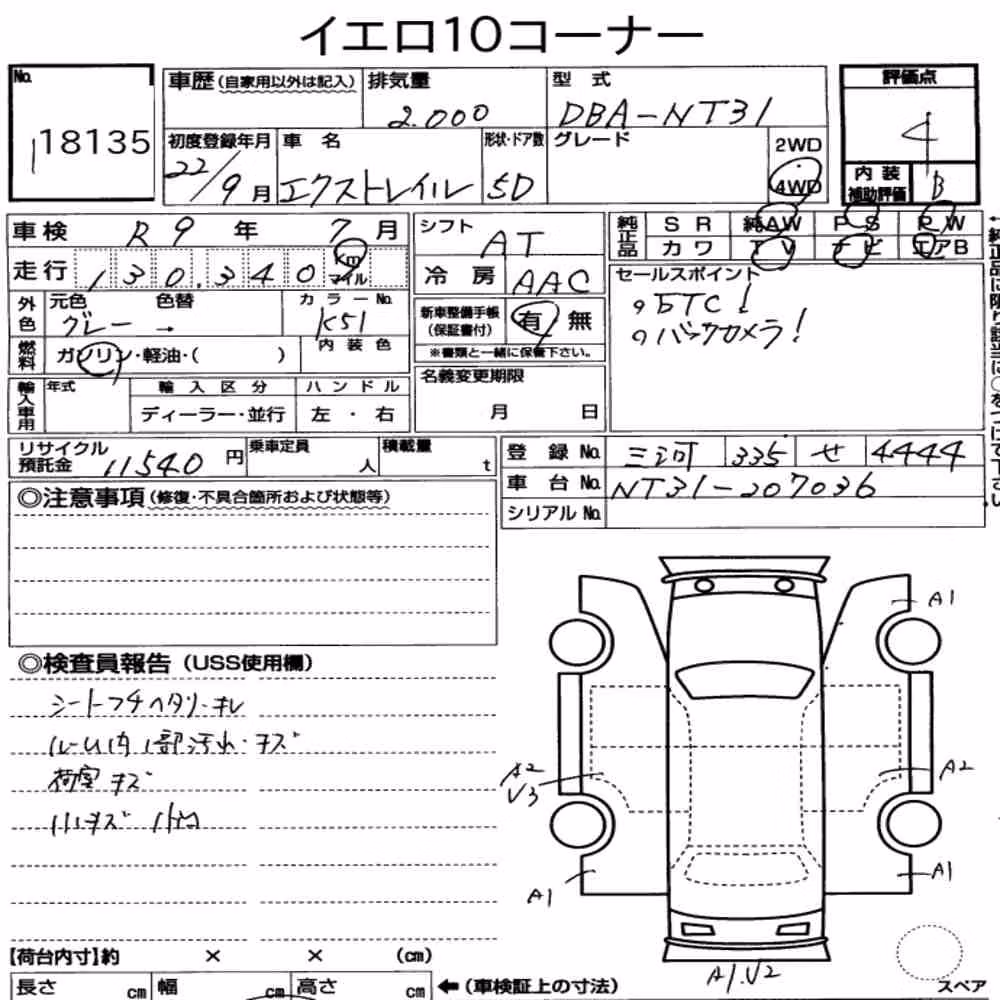 イエロ10コーナー
No. 18135
車歴 (自家用以外は記入)
排気量 2.000
型式 DBA-NT31
評価点 4
初度登録年月 22/9月
車名 エクストレイル
形状・ドア数 5D
グレード
2WD
4WD
内装補助評価 B
車検 R9年 7月
走行 130.340 km マイル
シフト AT
冷房 AAC
純正品 SR 純AW PS PW
カワ TV ナビ エアB
セールスポイント
○ETC!
○バックカメラ!
外色 元色 グレー → 色替
カラーNo. K51
燃料 ガソリン・軽油・( )
内装色
新車整備手帳 (保証書付) 有 無
※書類と一緒に保管下さい。
輸入車用 年式
輸入区分 ディーラー・並行
ハンドル 左・右
名義変更期限
月 日
リサイクル預託金 11540円
乗車定員 人
積載量 t
登録No. 三河 335 せ 4444
車台No. NT31-207036
シリアルNo.
◎注意事項 (修復・不具合箇所および状態等)
◎検査員報告 (USS使用欄)
シートフチヘタリ・キレ
ルーム内1部汚れ・キズ
荷室キズ
小キズ 小凹
A1
A2
V3
A2
A1
A1
A1.V2
スペア
【荷台内寸】約 × × (cm)
長さ cm 幅 cm 高さ cm
←(車検証上の寸法)